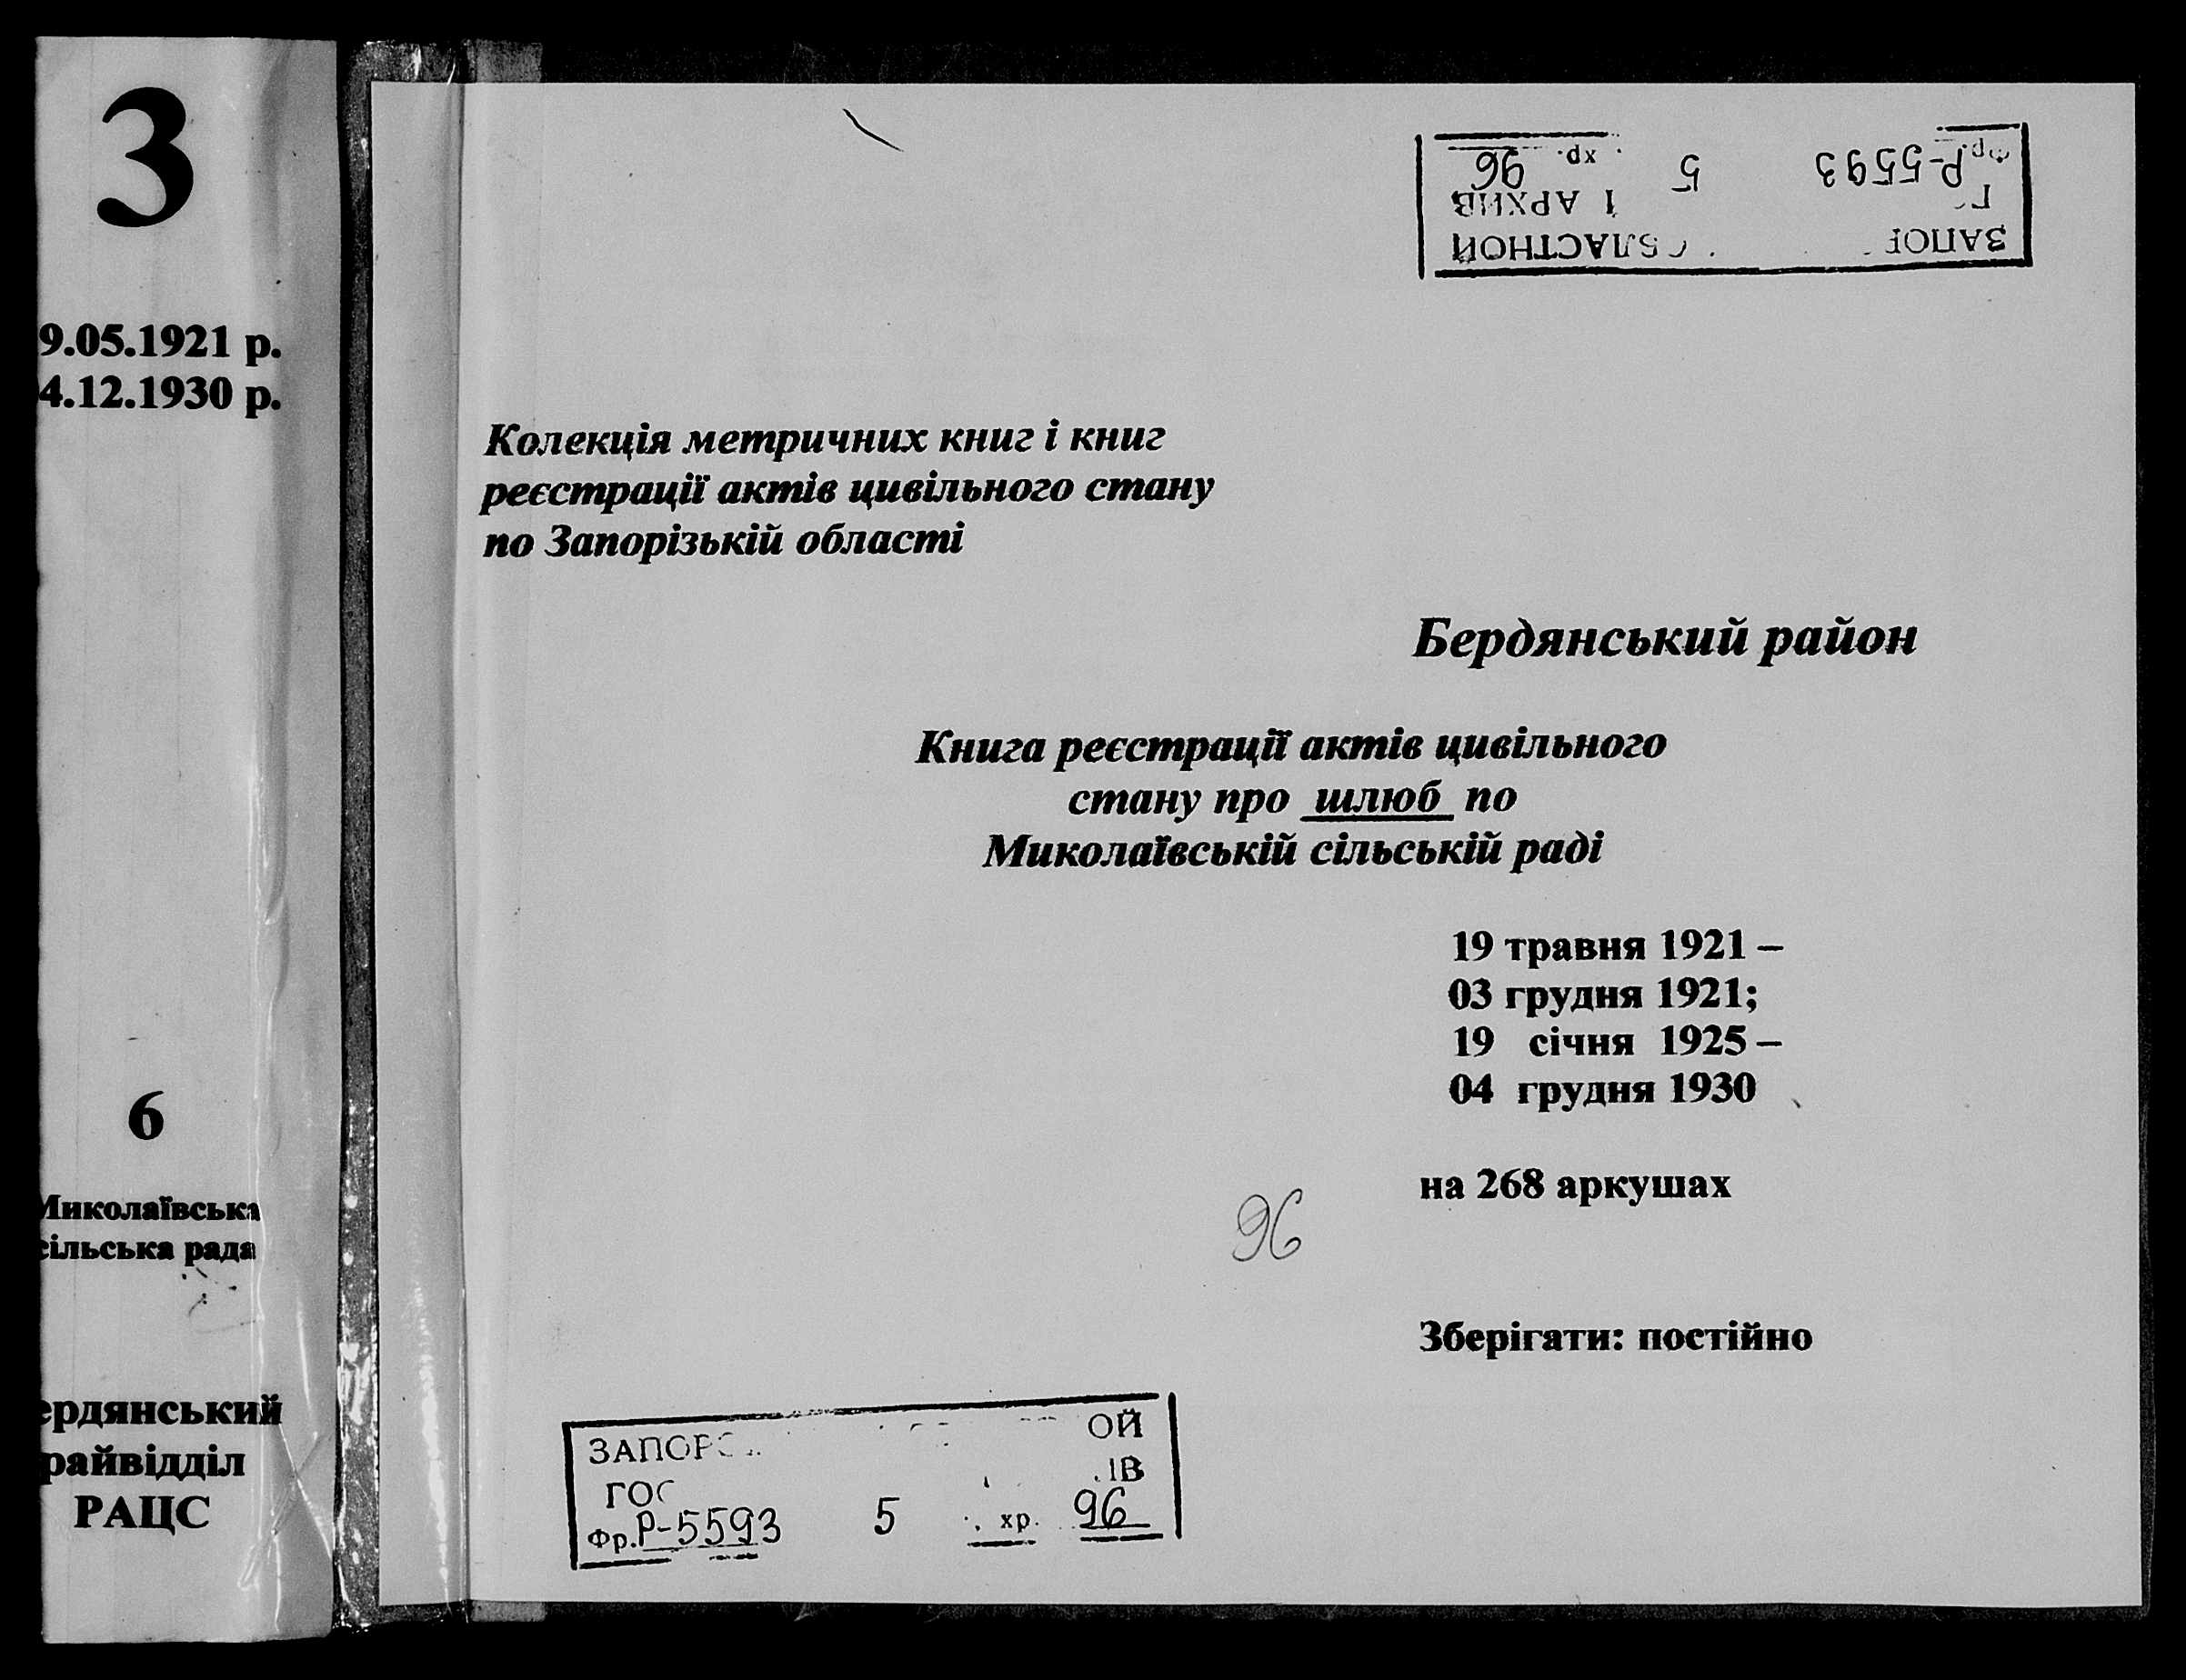 3
9.05.1921 р.
4.12.1930 р.
6
Миколаївська
сільська рада
ердянський
райвідділ
РАЦС
ЗАПОР ОБЛАСТНОЙ
Г АРХИВ
Фр. Р-5593 5 хр. 96
Колекція метричних книг і книг
реєстрації актів цивільного стану
по Запорізькій області
Бердянський район
Книга реєстрації актів цивільного
стану про шлюб по
Миколаївській сільській раді
19 травня 1921 –
03 грудня 1921;
19 січня 1925 –
04 грудня 1930
на 268 аркушах
96
Зберігати: постійно
ЗАПОР ОЙ
ГОС ИВ
Фр. Р-5593 5 хр. 96